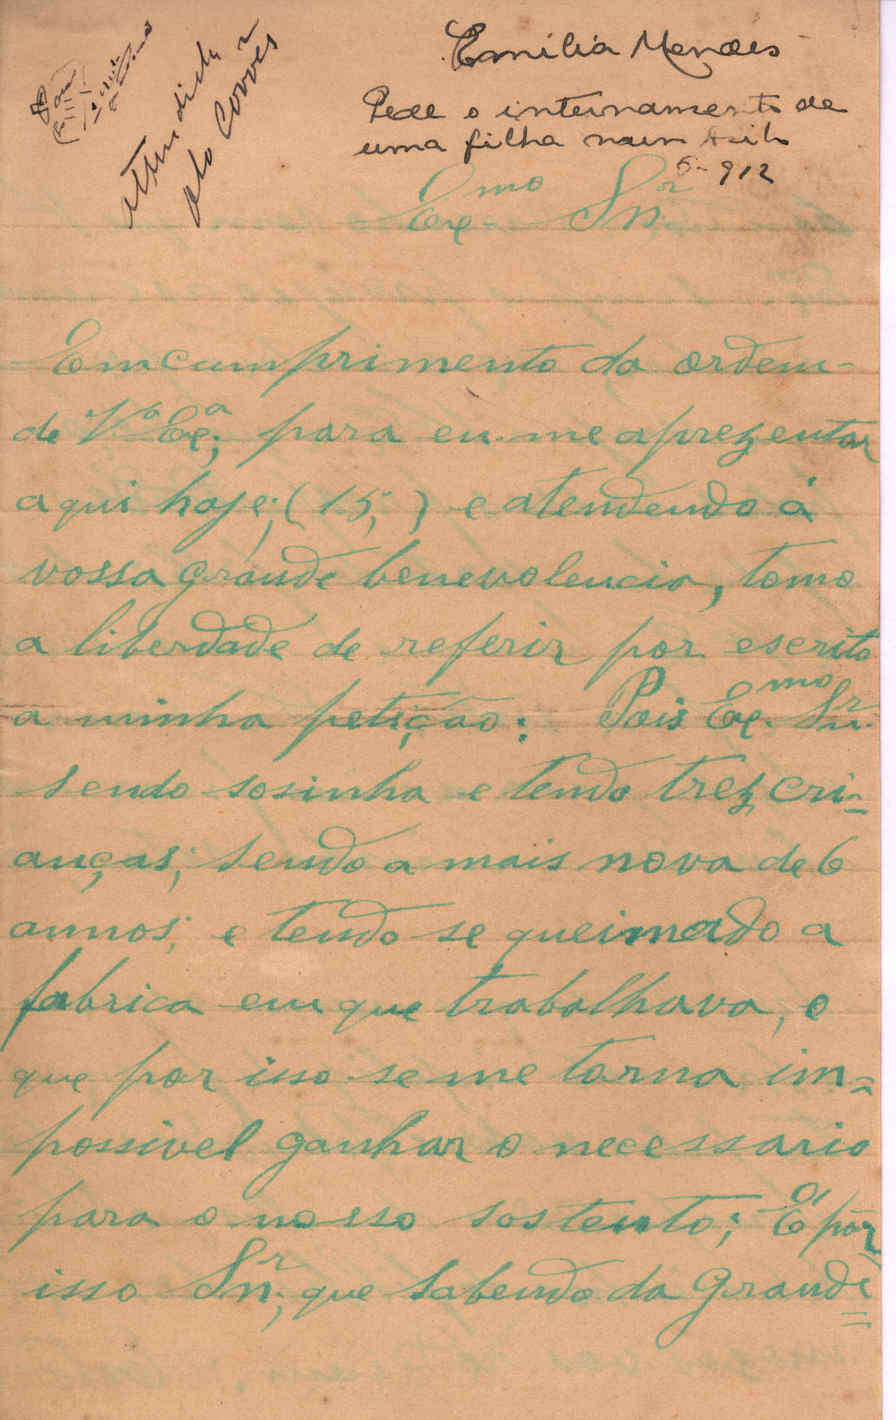 Emilia Mendes
Pede o internamento de
uma filha num
5-912
attendida
pelo Correio
Exmo Snr
Em cumprimento da ordem
de Vª Exª; para eu me aprezentar
aqui hoje; (15;) e atendendo á
vossa grande benevolencia, tomo
a liberdade de referir por escrito
a minha petição: Pois Exmo Snr
sendo sosinha e tendo trez cri=
anças; sendo a mais nova de 6
annos; e tendo se queimado a
fabrica em que trabalhava, e
que por isso se me torna im=
possivel ganhar o necessario
para o nosso sostento; É por
isso Snr; que sabendo da grande